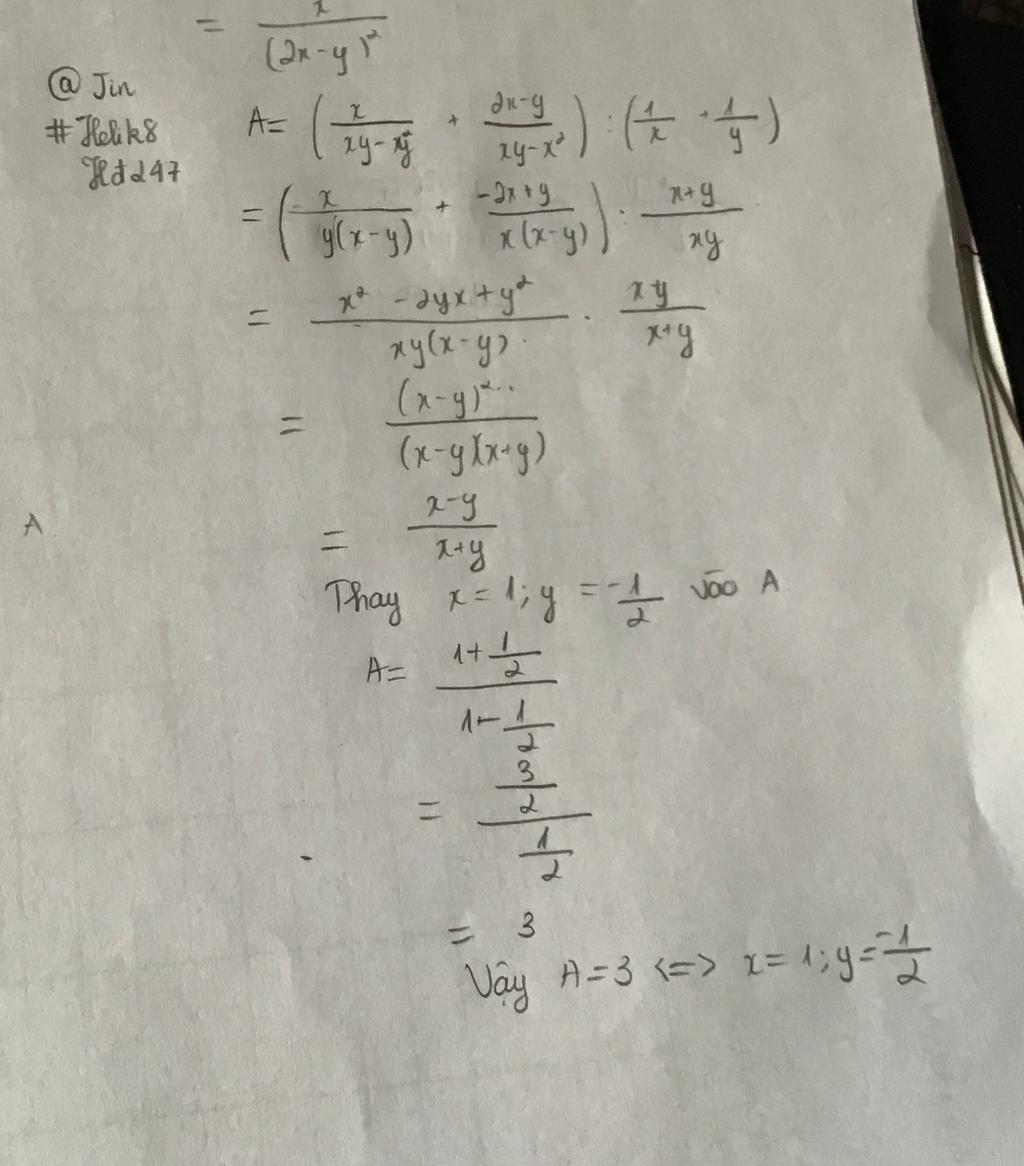 = x/(2x-y)²
@ Jin
# Helik8
Hd247
A= (x/(xy-y²) + (2x-y)/(xy-x²)) : (1/x + 1/y)
= (x/(y(x-y)) + (-2x+y)/(x(x-y))) : (x+y)/xy
= (x² - 2yx + y²)/(xy(x-y)) . xy/(x+y)
= (x-y)²/((x-y)(x+y))
A
= (x-y)/(x+y)
Thay x = 1; y = -1/2 vào A
A= (1+1/2)/(1-1/2)
= (3/2)/(1/2)
= 3
Vậy A=3 <=> x=1; y=-1/2